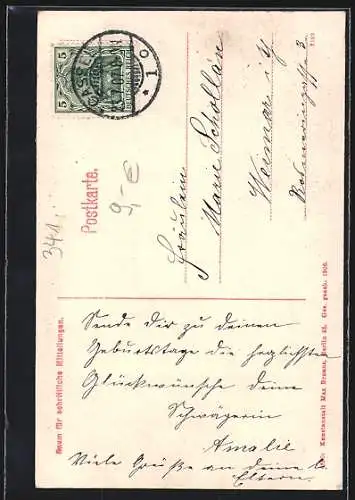 Postkarte.
CASSEL
DEUTSCHES REICH
5
5
* 1 o
341.
9,-€
Fräulein
Marie Schollän
Weimar i/Th
Raum für schriftliche Mitteilungen.
Sende Dir zu deinen
Geburtstage die herzlichsten
Glückwünsche deine
Schwägerin
Amalie
Viele Grüße an deine l.
Eltern.
Kunstanstalt Max Berlin Ges. gesch. 1906.